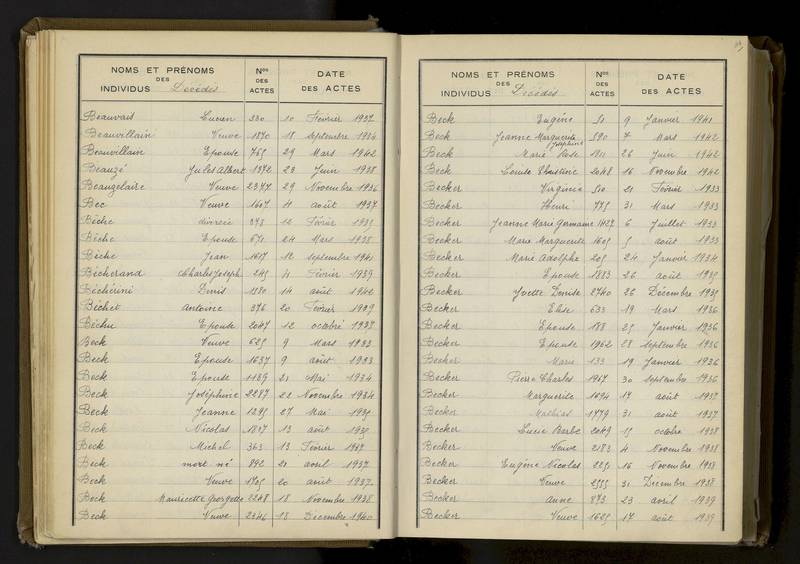 NOMS ET PRÉNOMS DES INDIVIDUS Décédés | Nos DES ACTES | DATE DES ACTES
Beauvais Lucien 330 10 Février 1937
Beauvillain Veuve 1870 18 septembre 1934
Beauvillain Epouse 765 29 Mars 1942
Beauzé Jules Albert 1372 23 Juin 1938
Beauzelaire Veuve 2377 29 Novembre 1936
Bec Veuve 1607 4 août 1937
Bèche divorcée 373 12 Février 1935
Bèche Epouse 671 24 Mars 1938
Bèche Jean 1617 12 septembre 1941
Bècherand Charles Joseph 245 4 Février 1939
Béchérini Denis 1230 14 août 1942
Béchet Antoine 376 20 Février 1939
Béchu Epouse 2047 12 octobre 1937
Beck Veuve 625 9 Mars 1933
Beck Epouse 1637 9 août 1933
Beck Epouse 1139 21 Mai 1934
Beck Joséphine 2287 22 Novembre 1934
Beck Jeanne 1295 27 Mai 1935
Beck Nicolas 1817 13 août 1935
Beck Michel 363 13 Février 1937
Beck mort né 892 21 avril 1937
Beck Veuve 1705 20 août 1937
Beck Mauricette Georgette 2248 18 Novembre 1938
Beck Veuve 2346 18 Décembre 1940
NOMS ET PRÉNOMS DES INDIVIDUS Décédés | Nos DES ACTES | DATE DES ACTES
Beck Eugène 51 9 Janvier 1941
Beck Jeanne Marguerite Joséphine 590 7 Mars 1942
Beck Marie Rose 26 Juin 1942
Beck Louise 2048 16 Novembre 1942
Becker Virginie 510 21 Février 1933
Becker Henri 775 31 Mars 1933
Becker Jeanne Marie Germaine 1427 6 Juillet 1933
Becker Marie Marguerite 1605 5 août 1933
Becker Marie Adolphe 205 24 Janvier 1934
Becker Epouse 1883 26 août 1935
Becker Yvette Denise 2740 26 Décembre 1935
Becker Elise 633 19 Mars 1936
Becker Epouse 188 25 Janvier 1936
Becker Epouse 1962 28 septembre 1936
Becker Marie 133 19 Janvier 1936
Becker Pierre Charles 1967 30 septembre 1936
Becker Marguerite 1694 17 août 1937
Becker Mathias 1779 31 août 1937
Becker Lucie Barbe 2049 15 octobre 1938
Becker Veuve 2183 4 Novembre 1938
Becker Eugène Nicolas 2251 16 Novembre 1938
Becker Veuve 2555 31 Décembre 1938
Becker Anne 873 23 avril 1939
Becker Veuve 1625 17 août 1939